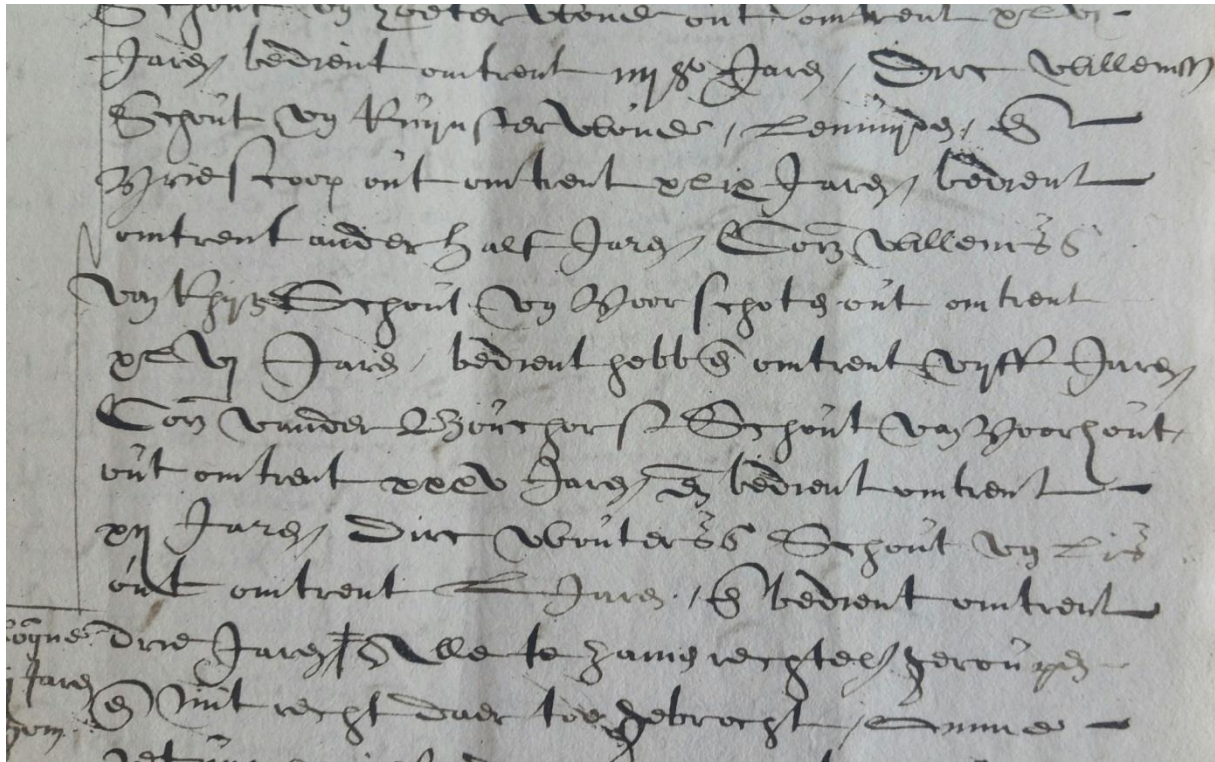 Schout van Zoeterwoude out omtrent xlvi
Jaren bedient omtrent iiij Jaren / Dirc willemsz
Schout van Ruijnsterwoude, Leimuyden, en
Vriescoop out omtrent xlix Jaren / bedient
omtrent anderhalf Jaren / Corn willemss
van Rhijn Schout van Voorschoten out omtrent
xlvj Jaren / bedient hebben omtrent vijff Jaren /
Corn vander Bouchorst Schout van Voorhout,
out omtrent xxxv Jaren / en bedient omtrent
xij Jaren / Dirc wouterss Schout van Lis
out omtrent L Jaren / en bedient omtrent
drie Jaren / Alle te zamen rechtel geroupen
Jaren
en mit recht daer toe gebrocht /